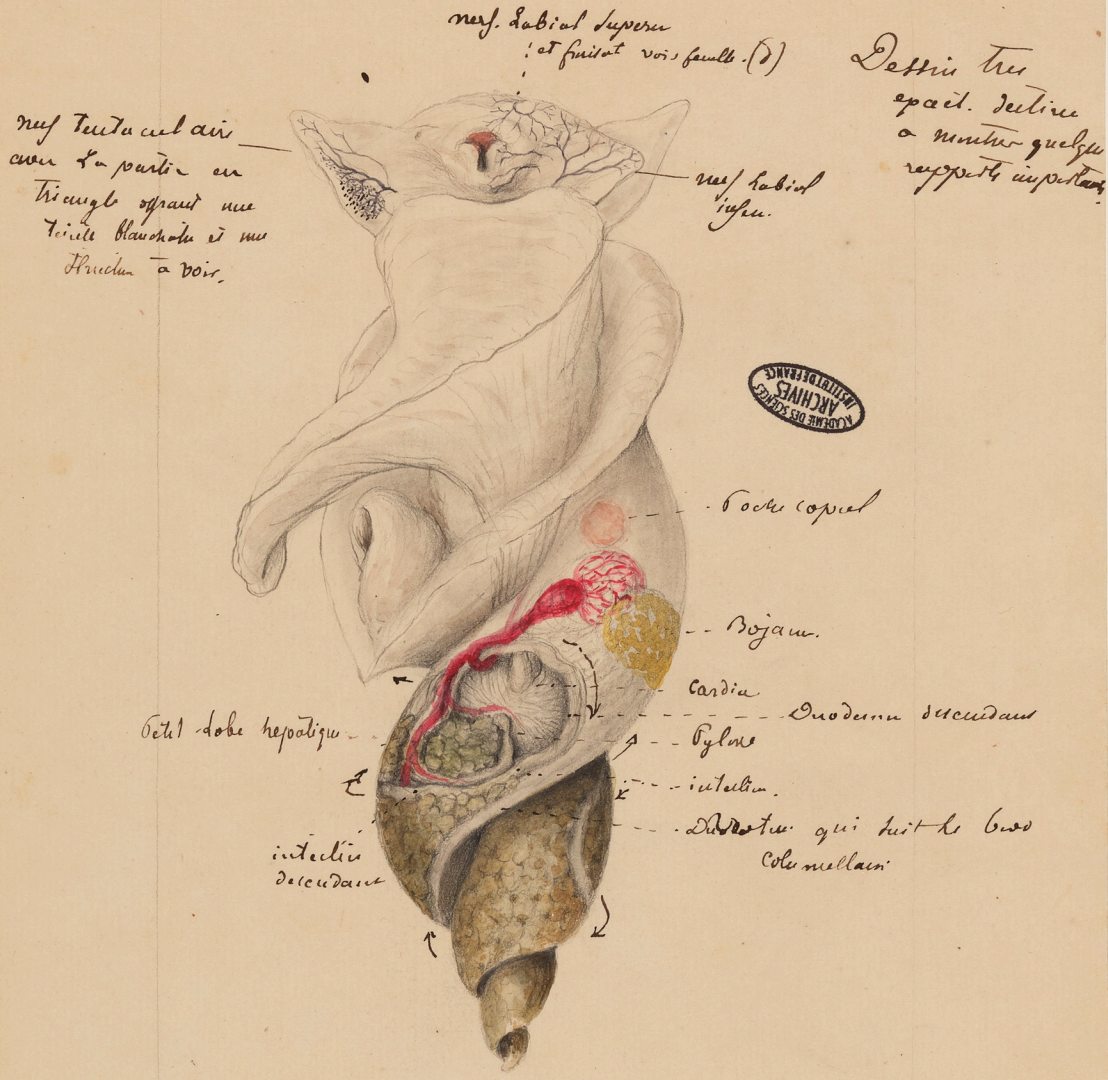 nerf. Labial superu
et finisat voir feuille. (d)
Dessin tres
exact. destine
a montrer quelque
rapports importans.
nerf tentaculaire
avec La partie en
triangle offrant une
teinte blanchatre et une
a voir.
nerf Labial
infer.
ACADÉMIE DES SCIENCES
ARCHIVES
INSTITUT DE FRANCE
Poche copul
Bojanu.
Cardia
Duodenum descendant
Petit Lobe hepatique
Pylore
intestin.
qui suit le bord
columellair
intestin
descendant